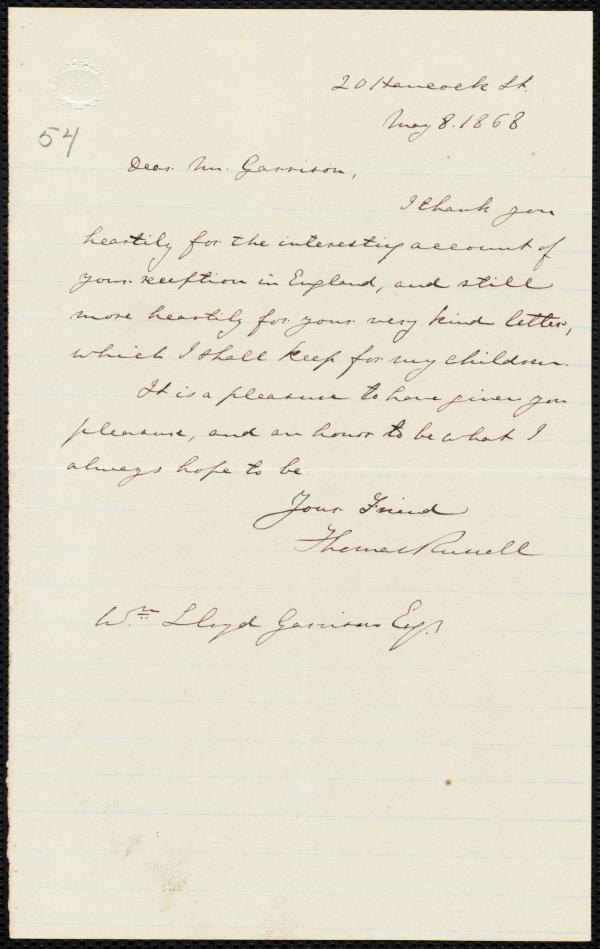 20 Hancock St.
May 8. 1868
54
Dear Mr. Garrison,
I thank you
heartily for the interesting account of
your reception in England, and still
more heartily for your very kind letter,
which I shall keep for my children.
It is a pleasure to have given you
pleasure, and an honor to be what I
always hope to be
Your Friend
Thomas Russell
Wm Lloyd Garrison Esq.